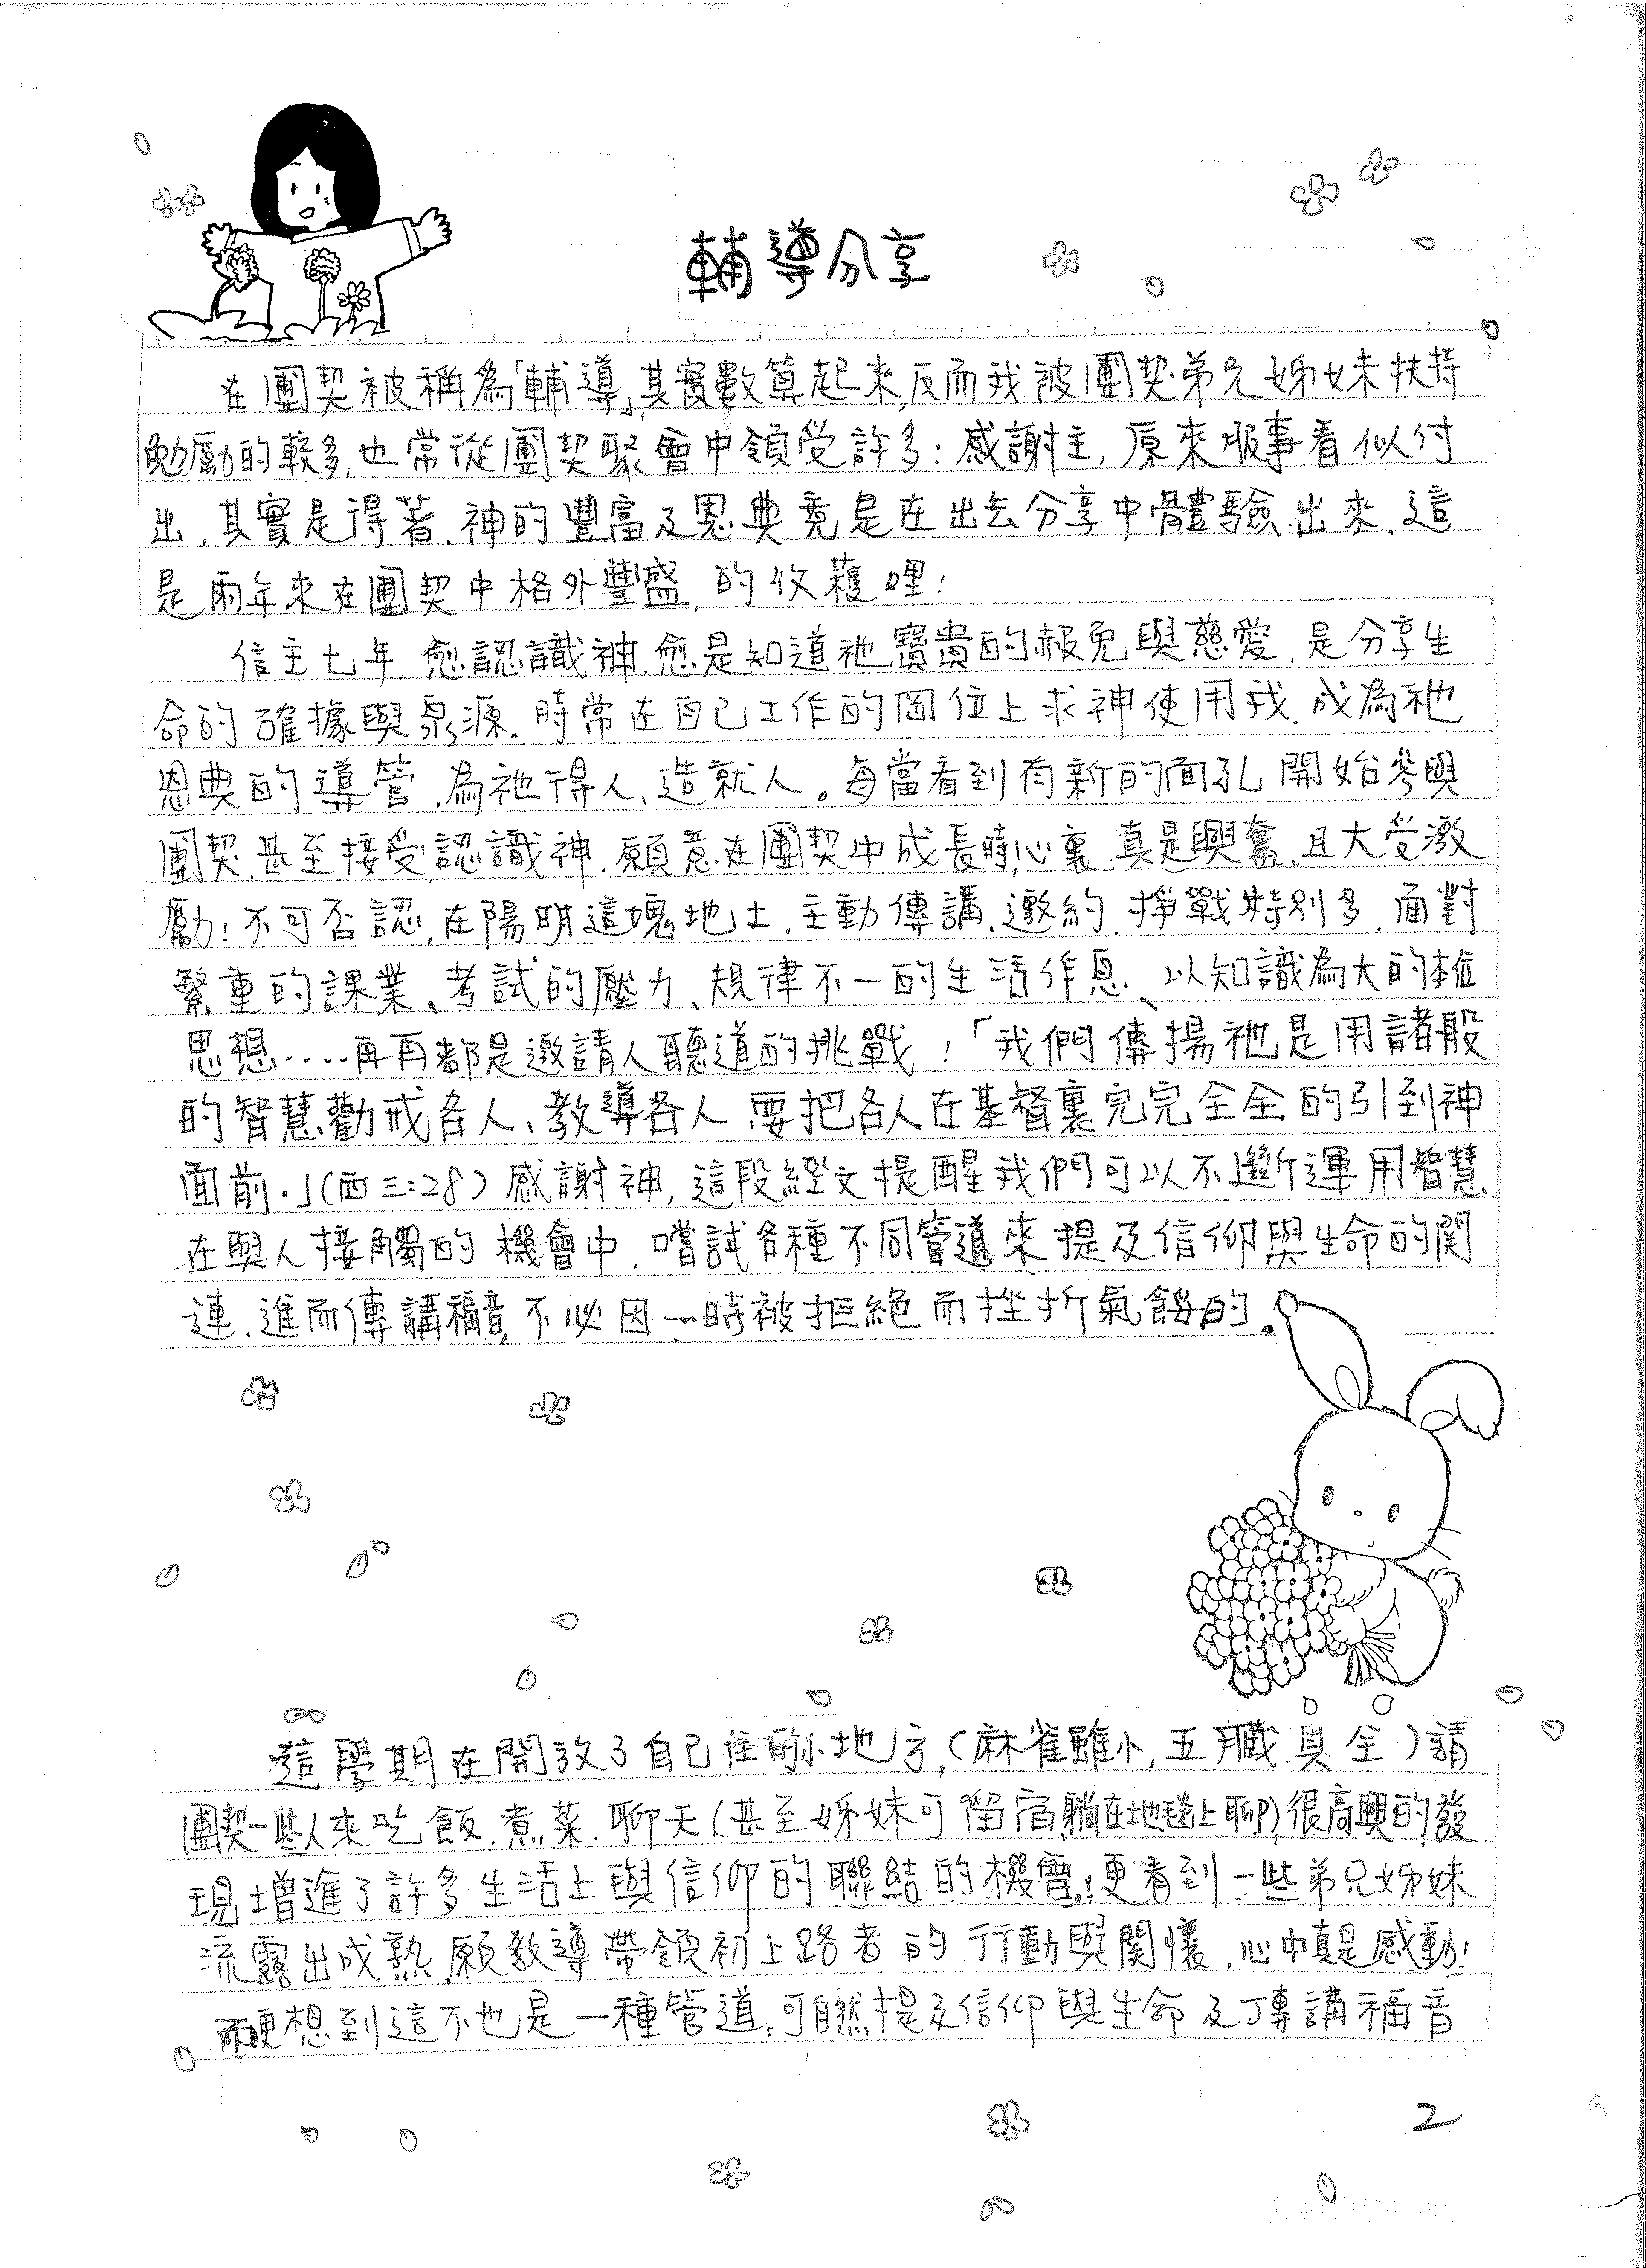 輔導分享
在團契被稱為「輔導」,其實數算起來,反而我被團契弟兄姊妹扶持
勉勵的較多,也常從團契聚會中領受許多:感謝主,原來服事看似付
出,其實是得著.神的豐富及恩典竟是在出去分享中體驗出來.這
是兩年來在團契中格外豐盛,的收穫哩!
信主七年,愈認識神.愈是知道祂寶貴的赦免與慈愛,是分享生
命的確據與泉源.時常在自己工作的崗位上求神使用我.成為祂
恩典的導管.為祂得人、造就人。每當看到有新的面孔開始參與
團契.甚至接受認識神.願意在團契中成長時,心裏真是興奮.且大受激
勵!不可否認,在陽明這塊地土.主動傳講.邀約.掙戰特別多.面對
繁重的課業、考試的壓力、規律不一的生活作息、以知識為大的本位
思想.....再再都是邀請人聽道的挑戰!「我們傳揚祂是用諸般
的智慧勸戒各人、教導各人.要把各人在基督裏完完全全的引到神
面前.」(西三:28)感謝神,這段經文提醒我們可以不斷運用智慧.
在與人接觸的機會中.嚐試各種不同管道來提及信仰與生命的関
連.進而傳講福音,不必因一時被拒絕而挫折氣餒的。
這學期在開放了自己住的小地方,(麻雀雖小,五臟具全)請
團契一些人來吃飯.煮菜.聊天(甚至姊妹可留宿躺在地毯上聊)很高興的發
現增進了許多生活上與信仰的聯結的機會!更看到一些弟兄姊妹
流露出成熟.願教導帶領初上路者的行動與関懷.心中真是感動!
而更想到這不也是一種管道.可自然提及信仰與生命及傳講福音
2